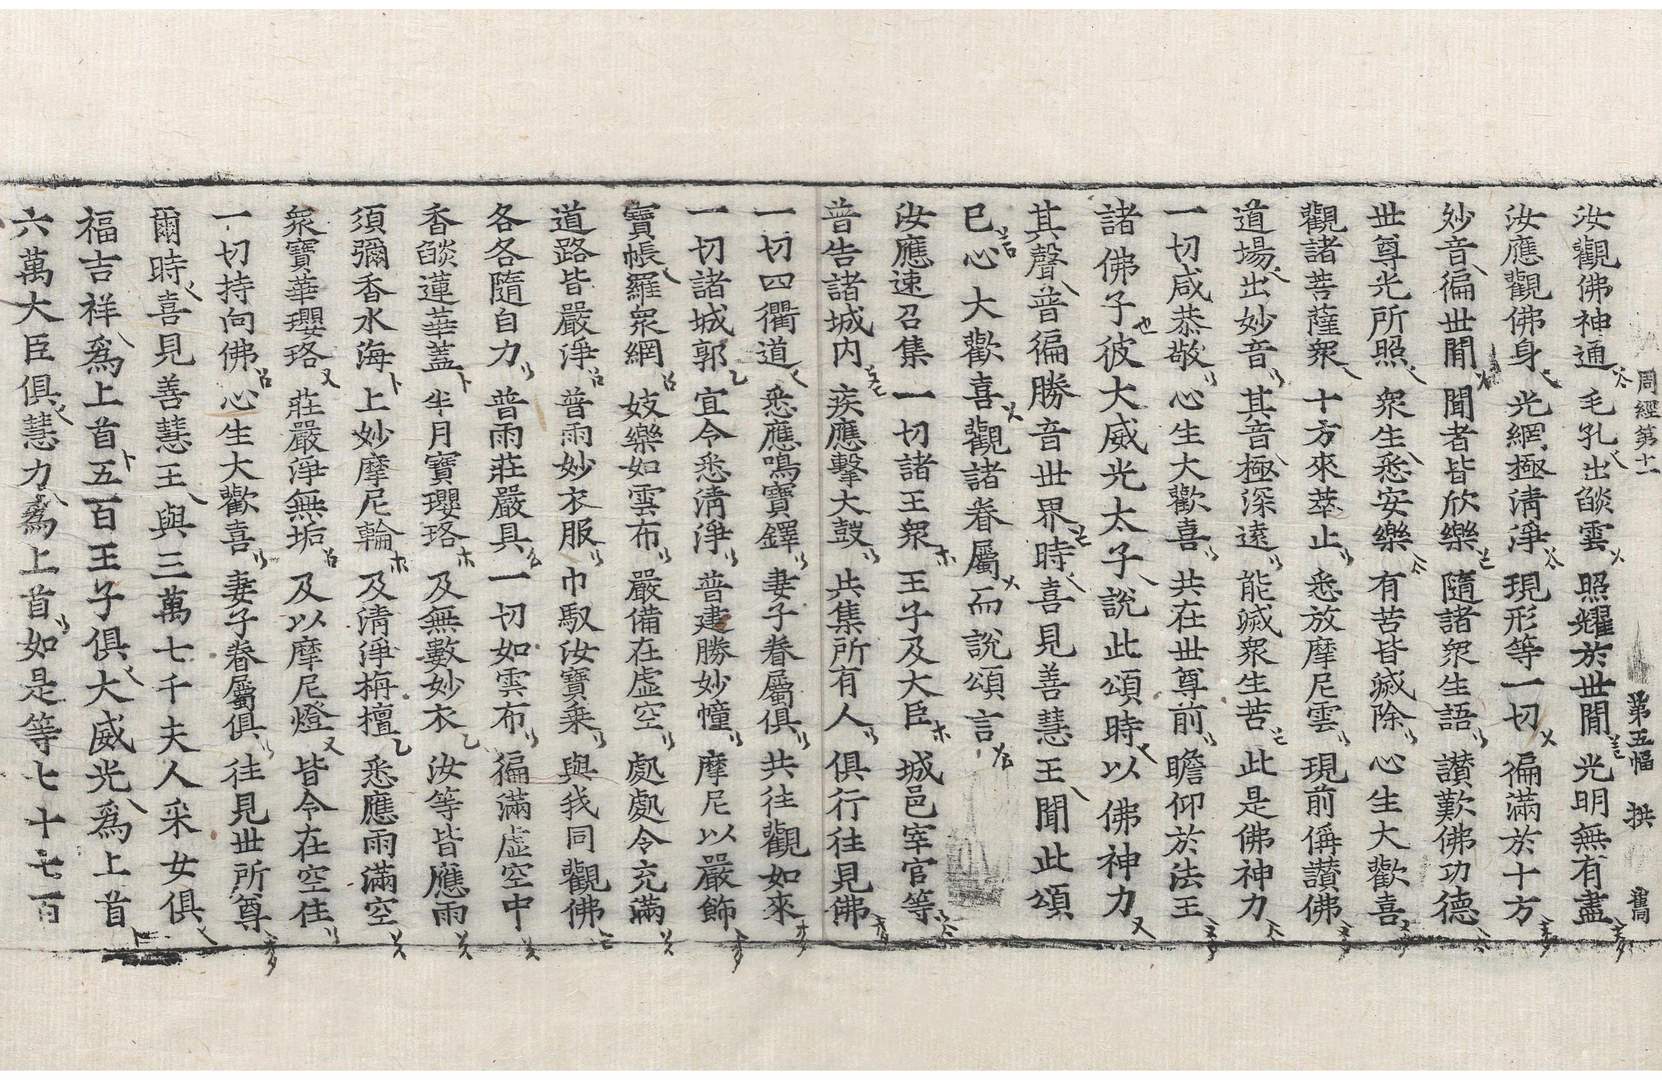 周經第十一　第五幅　拱　舊
汝觀佛神通　毛孔出燄雲　照耀於世閒　光明無有盡
汝應觀佛身　光網極清淨　現形等一切　徧滿於十方
妙音徧世閒　聞者皆欣樂　隨諸衆生語　讃歎佛功德
世尊光所照　衆生悉安樂　有苦皆滅除　心生大歡喜
觀諸菩薩衆　十方來萃止　悉放摩尼雲　現前偁讃佛
道場出妙音　其音極深遠　能滅衆生苦　此是佛神力
一切咸恭敬　心生大歡喜　共在世尊前　瞻仰於法王
諸佛子彼大威光太子說此頌時以佛神力
其聲普徧勝音世界時喜見善慧王聞此頌
已心大歡喜觀諸眷屬而說頌言
汝應速召集　一切諸王衆　王子及大臣　城邑宰官等
普告諸城內　疾應擊大鼓　共集所有人　俱行往見佛
一切四衢道　悉應鳴寶鐸　妻子眷屬俱　共往觀如來
一切諸城郭　宜令悉清淨　普建勝妙幢　摩尼以嚴飾
寶帳羅衆網　妓樂如雲布　嚴備在虛空　處處令充滿
道路皆嚴淨　普雨妙衣服　巾馭汝寶乘　與我同觀佛
各各隨自力　普雨莊嚴具　一切如雲布　徧滿虛空中
香燄蓮華蓋　半月寶瓔珞　及無數妙衣　汝等皆應雨
須彌香水海　上妙摩尼輪　及清淨栴檀　悉應雨滿空
衆寶華瓔珞　莊嚴淨無垢　及以摩尼燈　皆令在空住
一切持向佛　心生大歡喜　妻子眷屬俱　往見世所尊
爾時喜見善慧王與三萬七千夫人采女俱
福吉祥爲上首五百王子俱大威光爲上首
六萬大臣俱慧力爲上首如是等七十七百